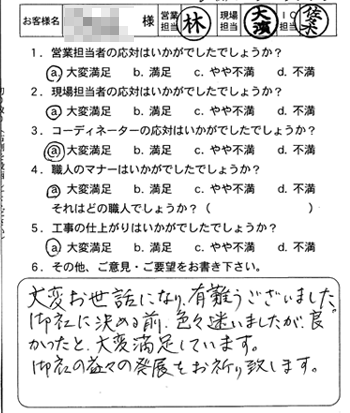 お客様名 様 営業担当 林 現場担当 大濱 IC担当
1．営業担当者の応対はいかがでしたでしょうか？
a. 大変満足 b. 満足 c. やや不満 d. 不満
2．現場担当者の応対はいかがでしたでしょうか？
a. 大変満足 b. 満足 c. やや不満 d. 不満
3．コーディネーターの応対はいかがでしたでしょうか？
a. 大変満足 b. 満足 c. やや不満 d. 不満
4．職人のマナーはいかがでしたでしょうか？
a. 大変満足 b. 満足 c. やや不満 d. 不満
それはどの職人でしょうか？（ ）
5．工事の仕上がりはいかがでしたでしょうか？
a. 大変満足 b. 満足 c. やや不満 d. 不満
6．その他、ご意見・ご要望をお書き下さい。
大変お世話になり、有難うございました。
御社に決める前、色々迷いましたが、良
かったと、大変満足しています。
御社の益々の発展をお祈り致します。